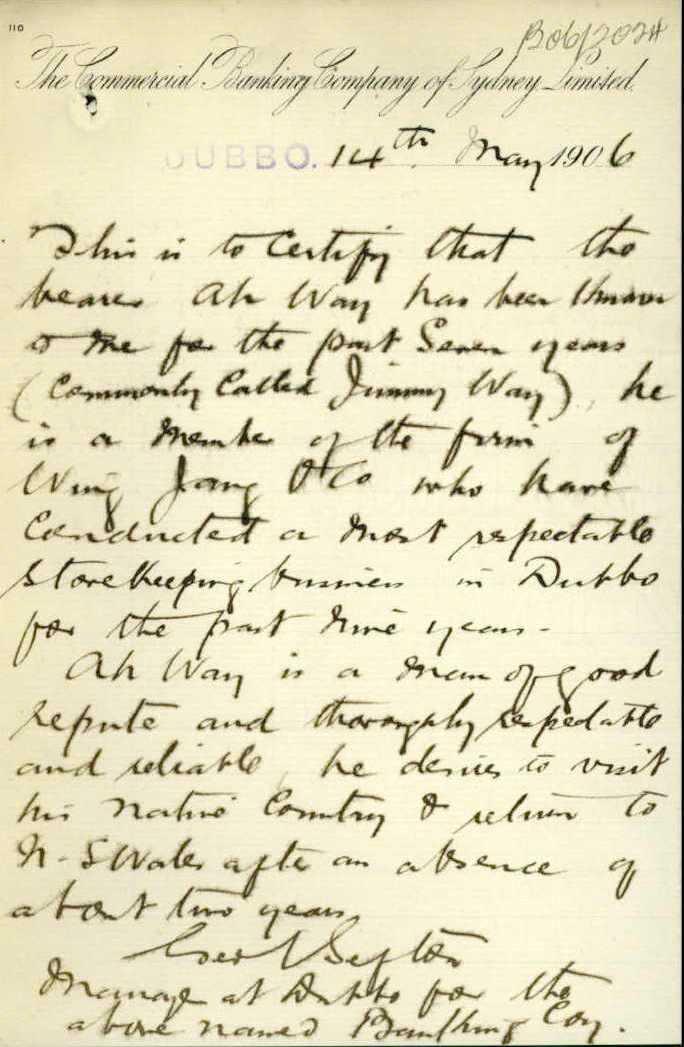 110
B06/2024
The Commercial Banking Company of Sydney Limited.
DUBBO. 14th May 1906
This is to Certify that the
bearer Ah Way has been Known
to me for the past Seven years
(Commonly Called Jimmy Way), he
is a Member of the firm of
Wing Jang & Co who have
Conducted a Most respectable
StoreKeeping business in Dubbo
for the past Nine years -
Ah Way is a man of good
repute and thoroughly respectable
and reliable, he desires to visit
his Native Country & return to
N. S Wales after an absence of
about two years
Manager at Dubbo for the
above named Banking Coy.